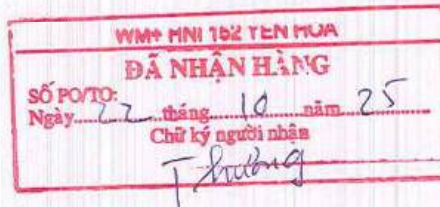 WM+ HNI 152 YEN HOA
ĐÃ NHẬN HÀNG
SỐ PO/TO:
Ngày......22......tháng......10......năm...25
Chữ ký người nhận
Thương